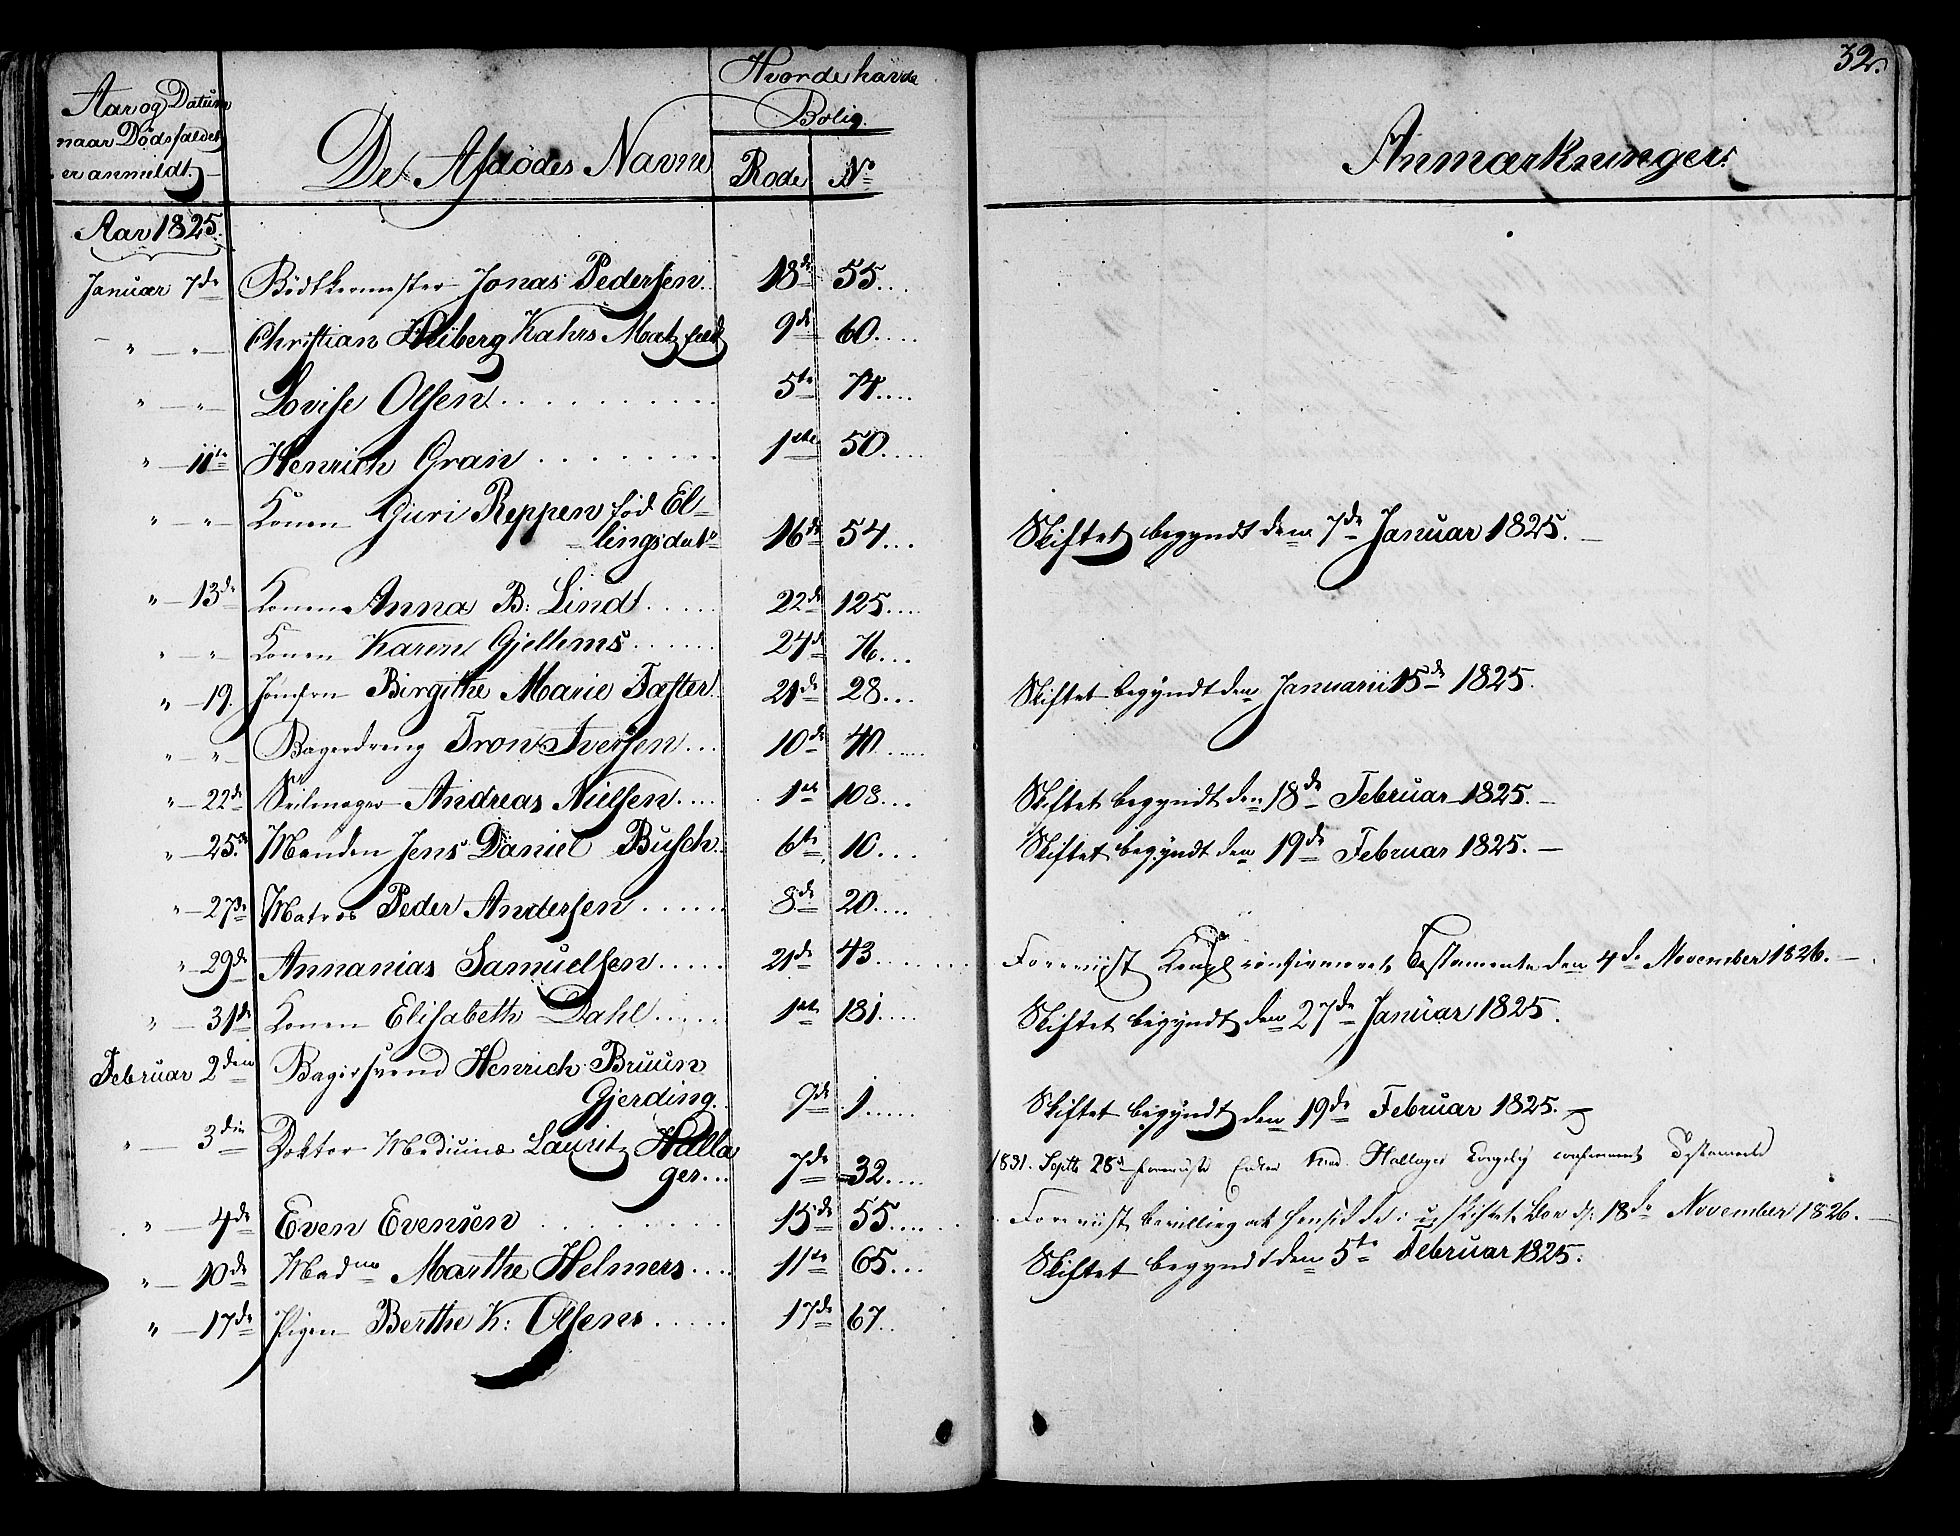 32.
Aar og Datum
naar Dødsfaldet
er anmeldt.
De Afdødes Navne
Hvor de havde
Bolig.
Rode No
Anmærkninger.
Aar 1825.
Januar 7de Bødtkermester Jonas Pedersen. 18de 55....
" — " — Christian Heiberg Kahrs Matzfeldt 9de 60....
" — " — Lovise Olsen.......... 5te 74....
" — 11te Henrich Gran ........ 1ste 50....
" — " — Konen Guri Reppen fød El-
lingsdatr 16de 54... Skiftet begyndt den 7de Januar 1825. —
" — 13de Konen Anna B: Lindt..... 22de 125....
" — " — Konen Karen Gjellems...... 24de 76...
" — 19. Jomfru Birgithe Marie Faster. 21de 28... Skiftet begyndt den Januarii 15de 1825.
" — " — Bagerdreng Tron Iversen... 10de 40.....
" — 22de Seilmager Andreas Nielsen.... 1ste 108... Skiftet begyndt den 18de Februar 1825. —
" — 25de Manden Jens Daniel Busch.. 6te 10... Skiftet begyndt den 19de Februar 1825. —
" — 27de Matros Peder Andersen ...... 8de 20....
" — 29de Annanias Samuelsen..... 21de 43....... Foreviist Kongl confirmeret Testamente den 4de November 1826. —
" — 31te Konen Elisabeth Dahl...... 1ste 181.... Skiftet begyndt den 27de Januar 1825.
Februar 2den Bagersvend Henrich Bruun
Gjerding. 9de 1...... Skiftet begyndt den 19de Februar 1825. —
" — 3die Doktor Medicinæ Lauritz Halla
ger... 7de 32.... 1831. Septb 28d foreviiste Enken Mad. Hallager Kongelig confirmeret Testamente
" — 4de Even Evensen .......... 15de 55...... Foreviist bevilling at hensidde i uskiftet Boe d: 18de November 1826. —
" — 10de Madme Marthe Helmers.... 11te 65... Skiftet begyndt den 5te Februar 1825.
" — 17de Pigen Berthe K: Olsens...... 17de 67..